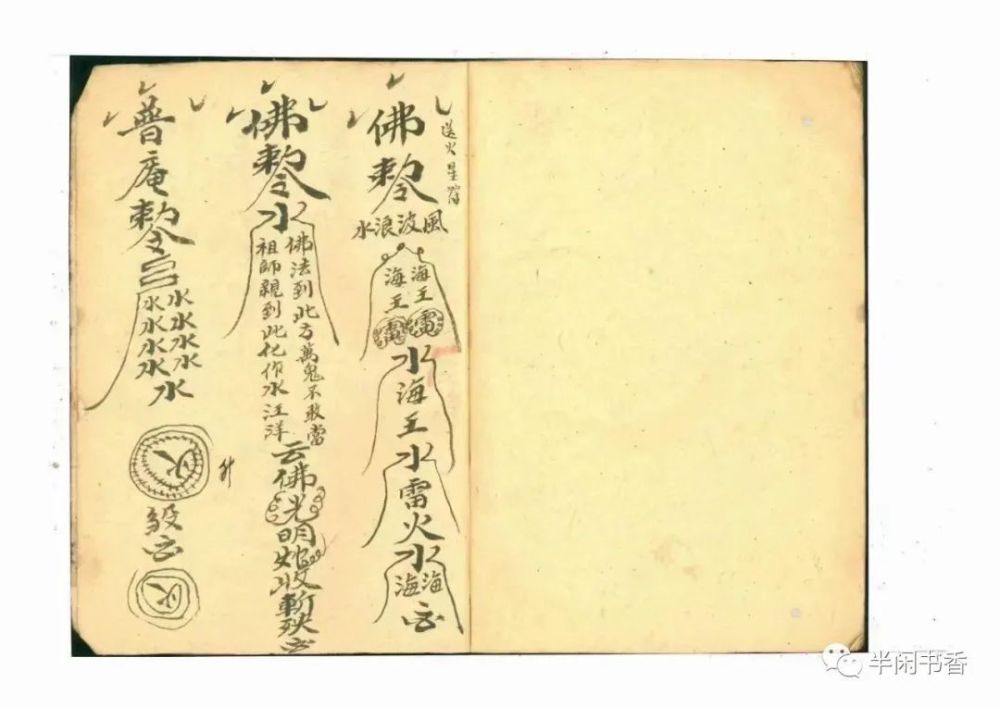 送火星
佛
勅令
水浪波風
海王 海王
雷 雷
水
海
王
水
雷
火
水
海海
佛
勅令
水
佛法到此方萬鬼不敢當
祖師親到此化作水汪洋
云佛光明
收斬
普
庵
勅令
水水
水水
水水
水水
水
火
火
半闲书香